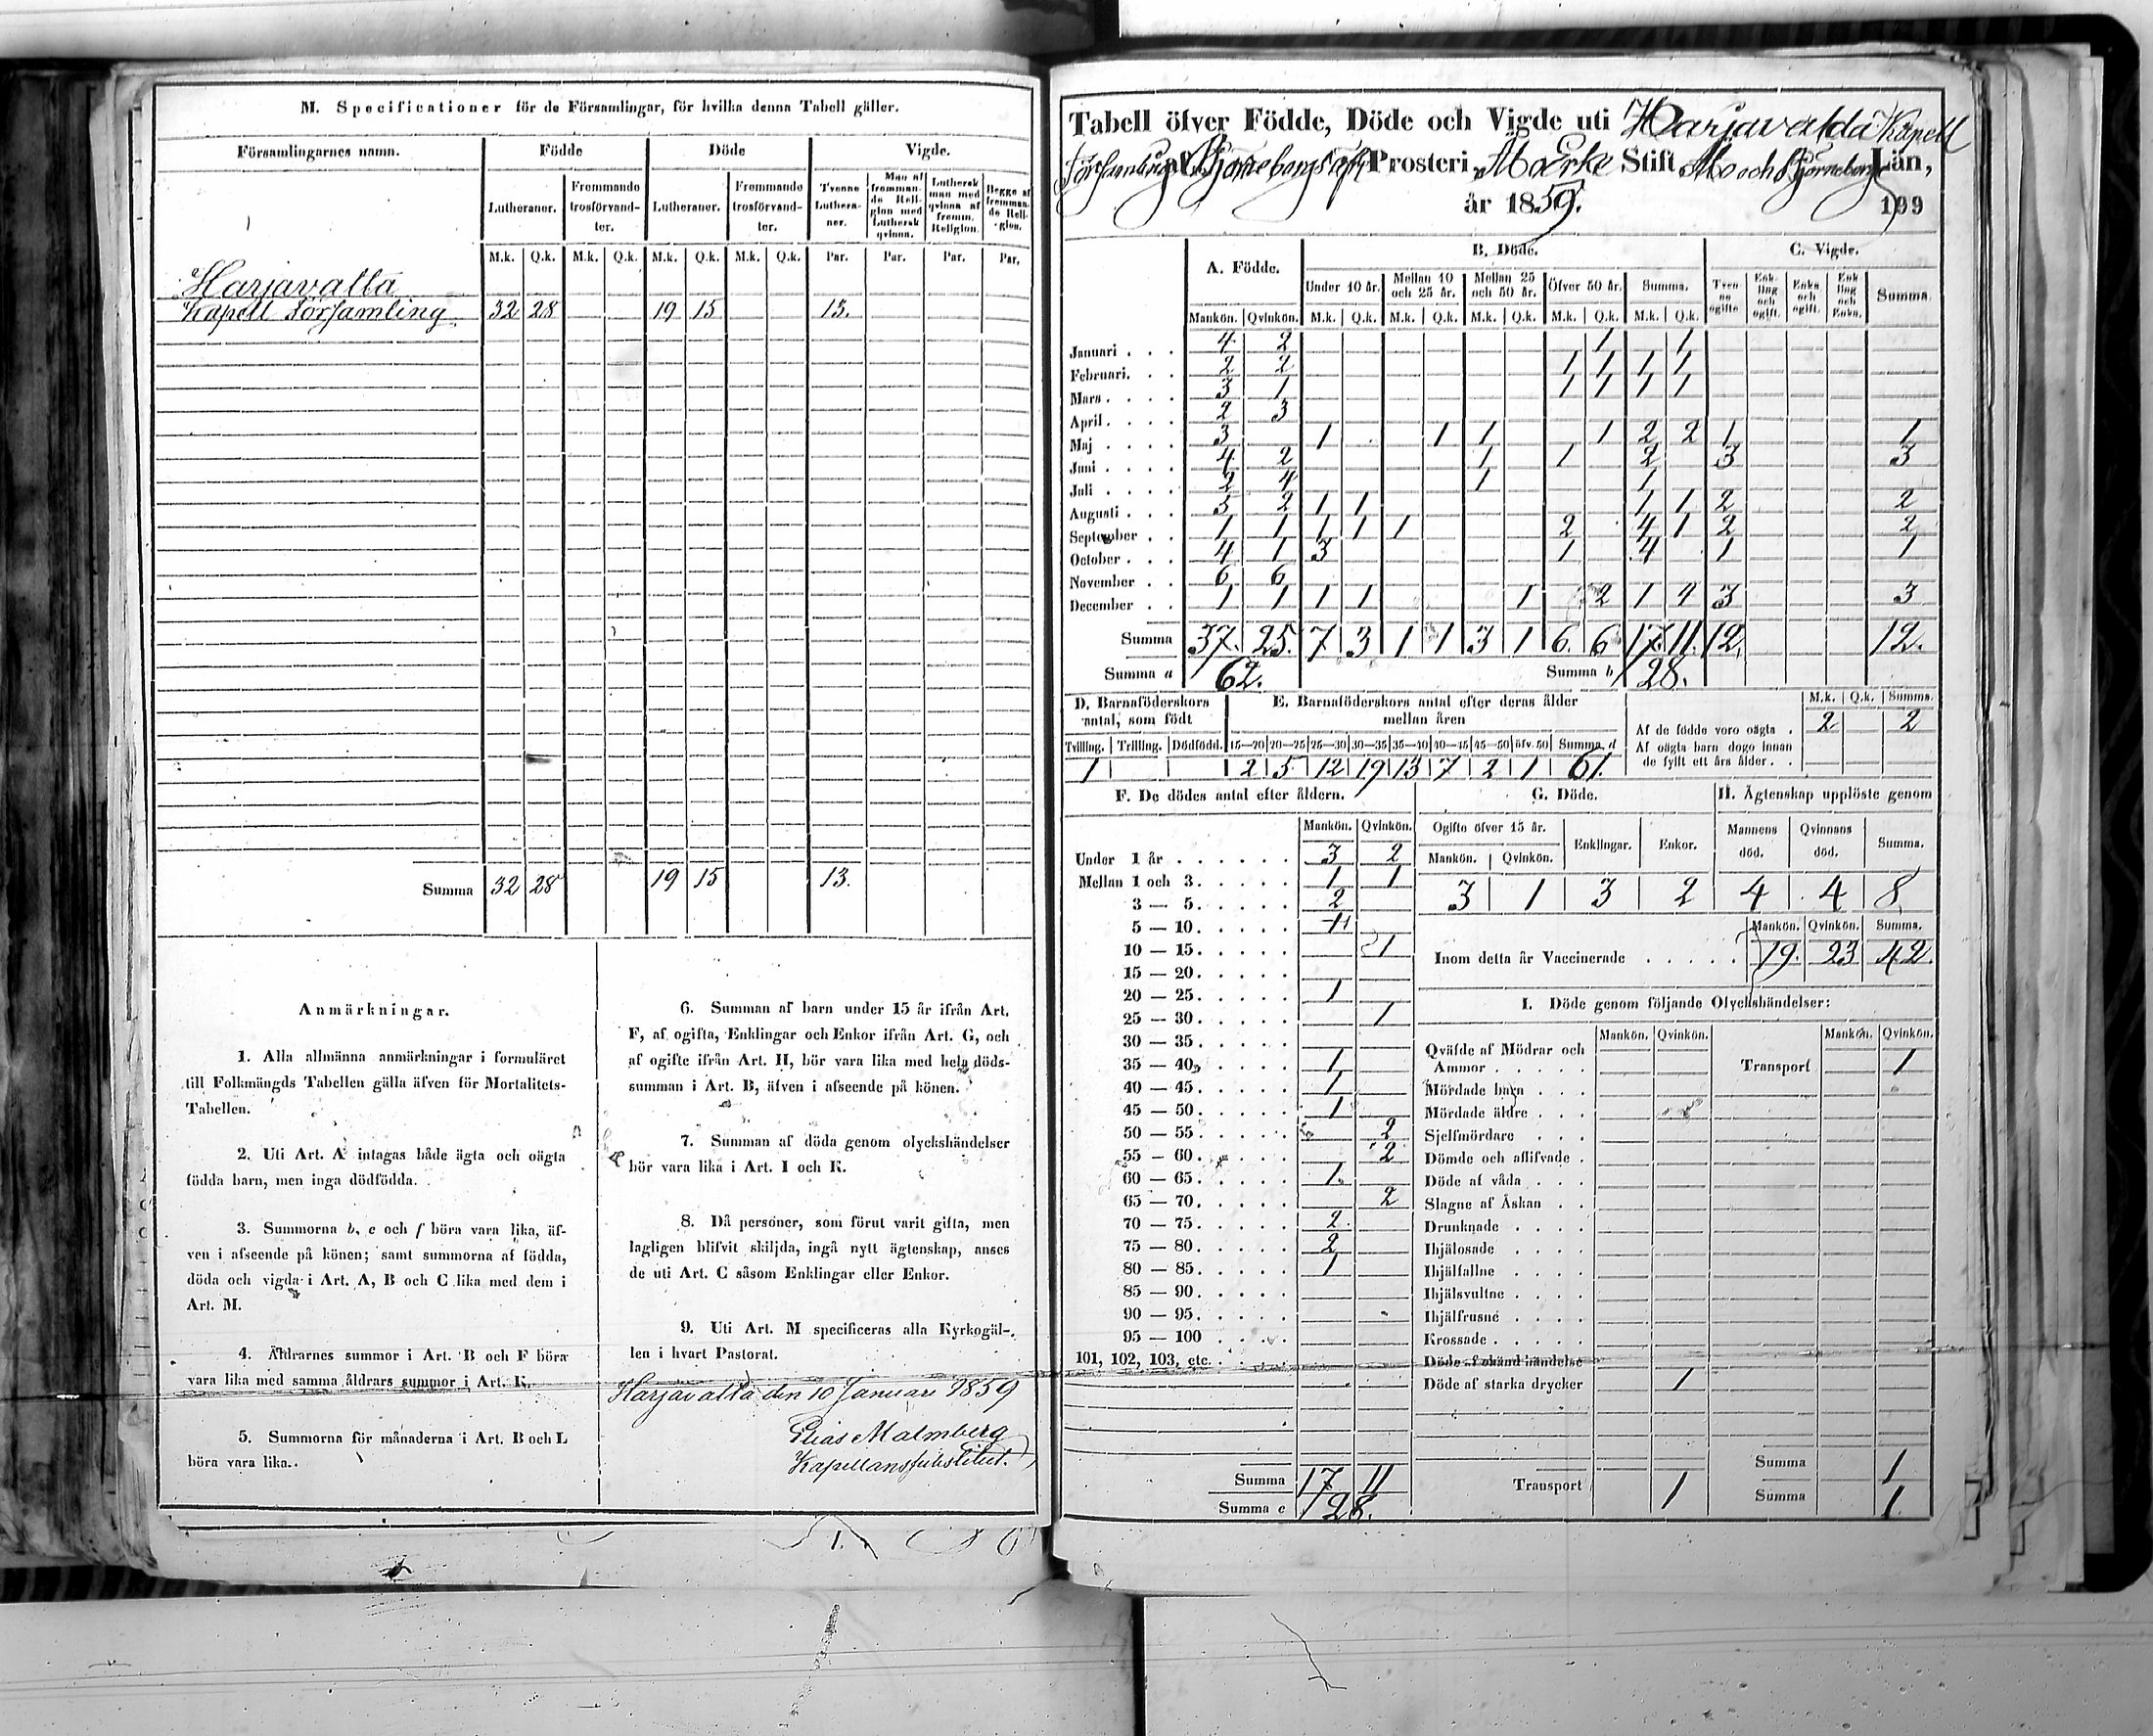 M. Specificationer för de Församlingar, för hvilka denna Tabell gäller.
Församlingarnes namn. Födde Döde Vigde.
Lutheraner. Fremmande trosförvandter. Lutheraner. Fremmande trosförvandter. Tvenne Lutheraner. Man af fremmande Religion med Luthersk qvinna. Luthersk man med qvinna af fremm. Religion. Begge af fremmande Religion.
M.k. Q.k. M.k. Q.k. M.k. Q.k. M.k. Q.k. Par. Par. Par. Par.
Harjavalta
Kapell Församling 32 28 19 15 13.
Summa 32 28 19 15 13.
Anmärkningar.
1. Alla allmänna anmärkningar i formuläret
till Folkmängds Tabellen gälla äfven för Mortalitets-
Tabellen.
2. Uti Art. A intagas både ägta och oägta
födda barn, men inga dödfödda.
3. Summorna b, c och f böra vara lika, äf-
ven i afseende på könen; samt summorna af födda,
döda och vigda i Art. A, B och C lika med dem i
Art. M.
4. Åldrarnes summor i Art. B och F böra
vara lika med samma åldrars summor i Art. K.
5. Summorna för månaderna i Art. B och L
böra vara lika.
6. Summan af barn under 15 år ifrån Art.
F, af ogifta, Enklingar och Enkor ifrån Art. G, och
af ogifte ifrån Art. H, bör vara lika med hela döds-
summan i Art. B, äfven i afseende på könen.
7. Summan af döda genom olyckshändelser
bör vara lika i Art. I och K.
8. Då personer, som förut varit gifta, men
lagligen blifvit skiljda, ingå nytt ägtenskap, anses
de uti Art. C såsom Enklingar eller Enkor.
9. Uti Art. M specificeras alla Kyrkogäl-
len i hvart Pastorat.
Harjavalta den 10 Januari 1859
Elias Malmberg
Kapellanssubstitut.
Tabell öfver Födde, Döde och Vigde uti Harjavalda Kapell
Församling af Björneborgs Prosteri, Åbo Erke Stift Åbo och Björneborgs Län,
år 1859.
199
A. Födde. B. Döde. C. Vigde.
Under 10 år. Mellan 10 och 25 år. Mellan 25 och 50 år. Öfver 50 år. Summa. Tvenne ogifte Enkling och ogift. Enka och ogift. Enkling och Enka. Summa
Mankön. Qvinkön. M.k. Q.k. M.k. Q.k. M.k. Q.k. M.k. Q.k. M.k. Q.k.
Januari . . . 4 2 1 1
Februari. . . 2 2 1 1 1 1
Mars . . . . 3 1 1 1 1 1
April . . . . 2 3
Maj . . . . 3 1 1 1 1 2 2 1 1
Juni . . . . 4 2 1 1 2 3 3
Juli . . . . 2 4 1 1
Augusti . . . 5 2 1 1 1 1 2 2
September . . 1 1 1 1 1 2 4 1 2 2
October . . . 4 1 3 1 4 1 1
November . . 6 6
December . . 1 1 1 1 1 2 1 4 3 3
Summa 37. 25. 7 3 1 1 3 1 6. 6 17. 11. 12. 12.
Summa a 62. Summa b 28.
D. Barnaföderskors antal, som födt E. Barnaföderskors antal efter deras ålder mellan åren
Tvilling. Trilling. Dödfödd. 15—20 20—25 25—30 30—35 35—40 40—45 45—50 öfv. 50 Summa d
1 2 5 12 19 13 7 2 1 61.
M.k. Q.k. Summa.
Af de födde voro oägta . 2 2
Af oägta barn dogo innan
de fyllt ett års ålder . .
F. De dödes antal efter åldern.
Mankön. Qvinkön.
Under 1 år . . . . . . 3 2
Mellan 1 och 3. . . . . 1 1
3 — 5. . . . . 2
5 — 10. . . . . 1
10 — 15. . . . . 1
15 — 20. . . . .
20 — 25. . . . . 1
25 — 30. . . . . 1
30 — 35. . . . .
35 — 40. . . . . 1
40 — 45. . . . . 1
45 — 50. . . . . 1
50 — 55. . . . . 2
55 — 60. . . . . 2
60 — 65. . . . . 1.
65 — 70. . . . . 2
70 — 75. . . . . 2.
75 — 80. . . . . 2
80 — 85. . . . . 1
85 — 90. . . . .
90 — 95. . . . .
95 — 100 . . . .
101, 102, 103, etc. . . . .
Summa 17 11
Summa c 28.
G. Döde.
Ogifte öfver 15 år. Enklingar. Enkor.
Mankön. Qvinkön.
3 1 3 2
H. Ägtenskap upplöste genom
Mannens död. Qvinnans död. Summa.
4 4 8
Mankön. Qvinkön. Summa.
Inom detta år Vaccinerade . . . . . 19. 23 42.
I. Döde genom följande Olyckshändelser:
Mankön. Qvinkön. Mankön. Qvinkön.
Qväfde af Mödrar och
Ammor . . . . . Transport 1
Mördade barn . . .
Mördade äldre . . .
Sjelfmördare . . .
Dömde och aflifvade .
Döde af våda . . .
Slagne af Åskan . .
Drunknade . . . .
Ihjälosade . . . .
Ihjälfallne . . . .
Ihjälsvultne . . . .
Ihjälfrusne . . . .
Krossade . . . . .
Döde af okänd händelse
Döde af starka drycker 1
Summa 1
Transport 1 Summa 1.